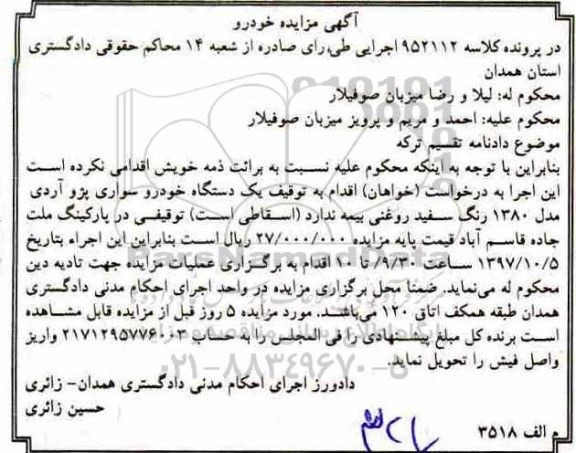 آگهی مزایده خودرو
در پرونده کلاسه ۹۵۲۱۱۲ اجرایی طی،رای صادره از شعبه ۱۴ محاکم حقوقی دادگستری
استان همدان
محکوم له: لیلا و رضا میزبان صوفیلار
محکوم علیه: احمد و مریم و پرویز میزبان صوفیلار
موضوع دادنامه تقسیم ترکه
بنابراین با توجه به اینکه محکوم علیه نسبت به برائت ذمه خویش اقدامی نکرده است
این اجرا به درخواست (خواهان) اقدام به توقیف یک دستگاه خودرو سواری پژو آردی
مدل ۱۳۸۰ رنگ سفید روغنی بیمه ندارد (اسقاطی است) توقیفی در پارکینگ ملت
جاده قاسم آباد قیمت پایه مزایده ۲۷/۰۰۰/۰۰۰ ریال است بنابراین این اجراء بتاریخ
۱۳۹۷/۱۰/۵ ساعت ۹/۳۰ الی ۱۰ اقدام به برگزاری عملیات مزایده جهت تادیه دین
محکوم له می‌نماید. ضمنا محل برگزاری مزایده در واحد اجرای احکام مدنی دادگستری
همدان طبقه همکف اتاق ۱۲۰ می‌باشد. مورد مزایده ۵ روز قبل از مزایده قابل مشاهده
است برنده کل مبلغ پیشنهادی را فی المجلس را به حساب واریز
واصل فیش را تحویل نماید.
۰۲۱-۸۸۳۴۹۶۷۰-۵
دادورز اجرای احکام مدنی دادگستری همدان- زائری
حسین زائری
م الف ۳۵۱۸